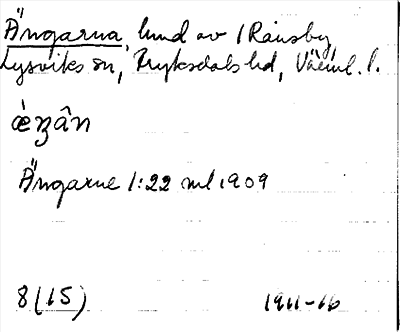 Ängarna, lund av / Ransby,
Lysviks sn, Fryksdals hd, Värml. l.
æ̀ŋân
Ängarne 1:22 ml 1909
8(15) 1911-16